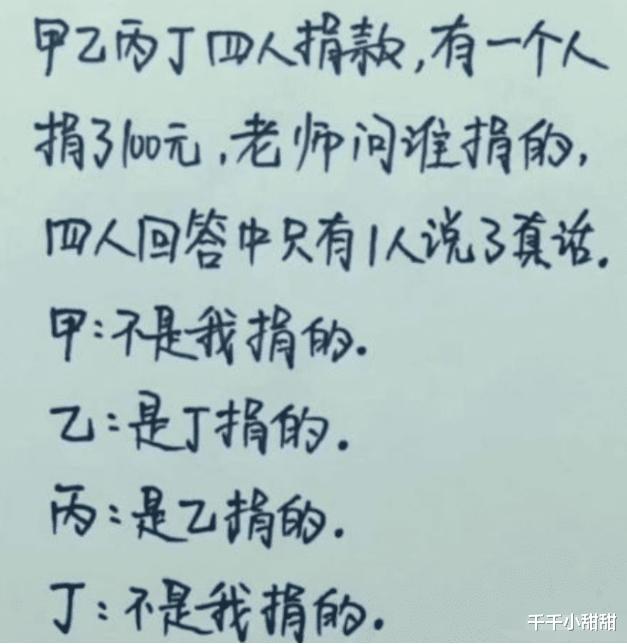 甲乙丙丁四人捐款,有一个人
捐了100元,老师问谁捐的,
四人回答中只有1人说了真话.
甲:不是我捐的.
乙:是丁捐的.
丙:是乙捐的.
丁:不是我捐的.
千千小甜甜